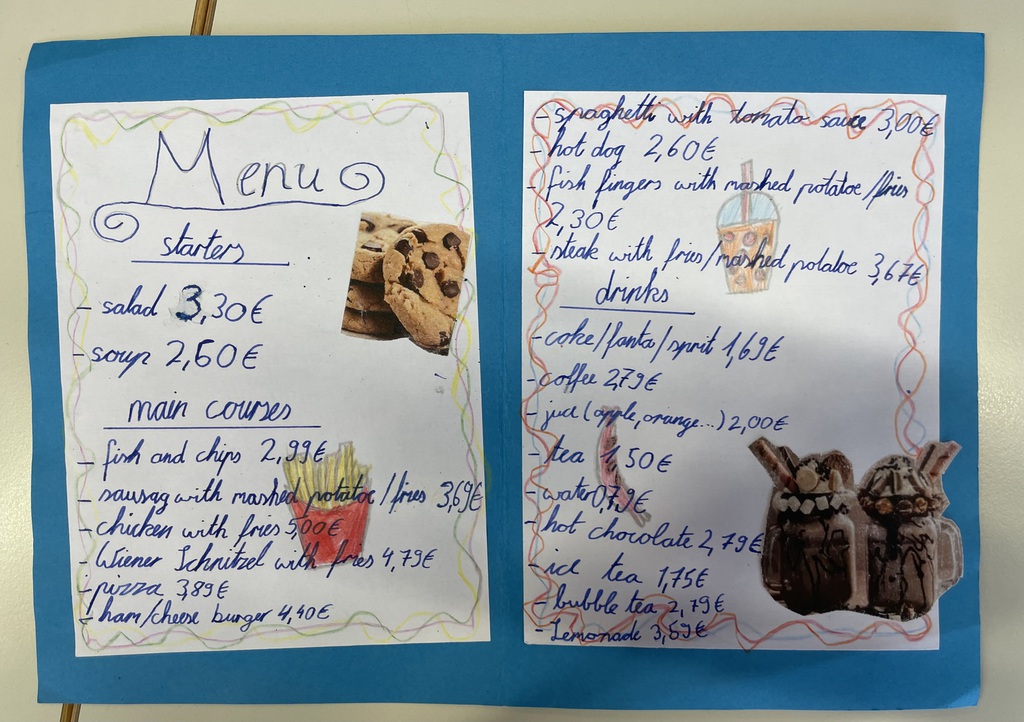 Menu
starters
- salad 3,30€
- soup 2,60€
main courses
- fish and chips 2,99€
- sausag with mashed potatoe/fries 3,69€
- chicken with fries 5,00€
- Wiener Schnitzel with fries 4,79€
- pizza 3,89€
- ham/cheese burger 4,40€
- spaghetti with tomato sauce 3,00€
- hot dog 2,60€
- fish fingers with mashed potatoe/fries
2,30€
- steak with fries/mashed potatoe 3,67€
drinks
- coke/fanta/sprit 1,69€
- coffee 2,79€
- juct (apple, orange...) 2,00€
- tea 1,50€
- water 0,79€
- hot chocolate 2,79€
- ice tea 1,75€
- bubble tea 2,79€
- Lemonade 3,59€